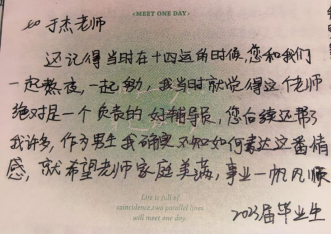 ·MEET ONE DAY·
to 于杰老师
还记得当时在十四运的时候,您和我们
一起熬夜,一起努,我当时就觉得这个老师
绝对是一个负责的好辅导员,您后续还帮了
我许多,作为男生我确实不知如何表达这番情
感,就希望老师家庭美满,事业一帆风顺
Life is full of
coincidence,two parallel lines
will meet one day.
2023届毕业生